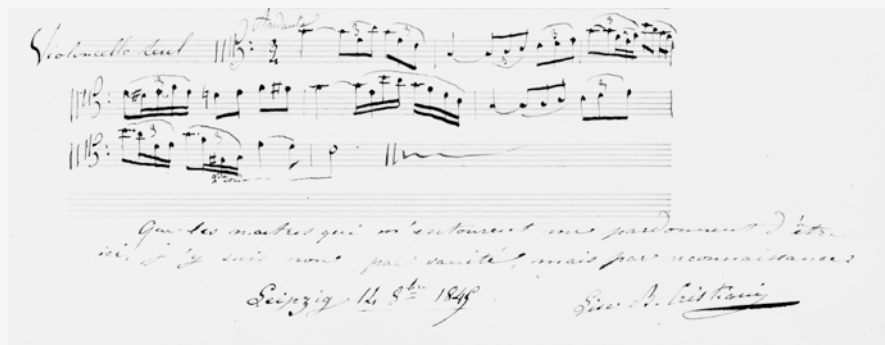 Andante
Violoncello seul
Que les maitres qui m'entourent me pardonnent d'être
ici, j'y suis non par vanité, mais par reconnaissance
Leipzig 14 8bre 1845 Lise B. Cristiani